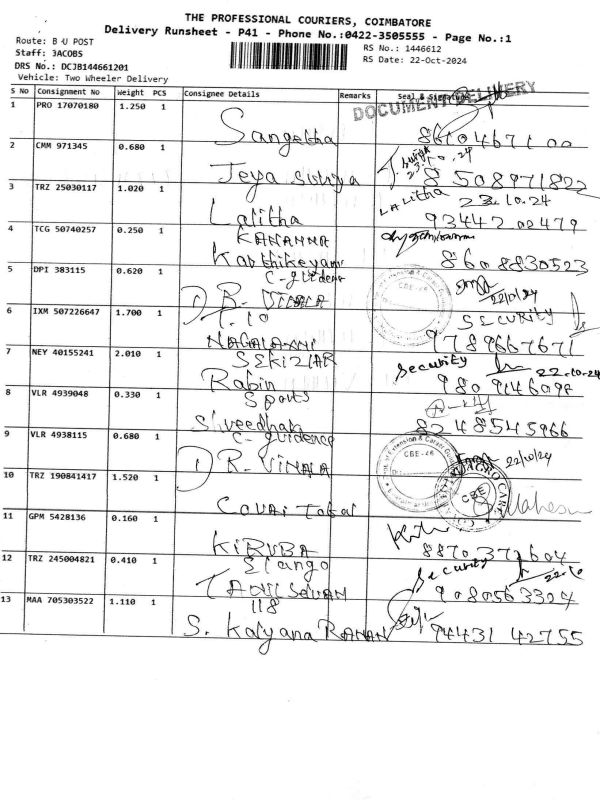 THE PROFESSIONAL COURIERS, COIMBATORE
Delivery Runsheet - P41 - Phone No.:0422-3505555 - Page No.:1
Route: B U POST
RS No.: 1446612
Staff: JACOBS
RS Date: 22-Oct-2024
DRS No.: DCJB144661201
Vehicle: Two Wheeler Delivery
S No Consignment No Weight PCS Consignee Details Remarks Seal & Signature
DOCUMENT DELIVERY
1 PRO 17070180 1.250 1
Sangeetha 8610467100
2 CMM 971345 0.680 1
23.10.24
Jeya suriya 8508971822
3 TRZ 25030117 1.020 1
LALitha 23.10.24
Lalitha 93442 00479
4 TCG 50740257 0.250 1
KANANNA
Karthikeyani 8608830523
5 DPI 383115 0.620 1
C-guidence
CBE-46
22/10/24
DR-VIMALA
6 IXM 507226647 1.700 1
SECURITY
NAGALAXMI 9789667671
7 NEY 40155241 2.010 1
SEKIZLAR Security 22.10.24
Rabin 9809146098
8 VLR 4939048 0.330 1
Sports
Shreedhar 8248545966
9 VLR 4938115 0.680 1
C-guidence
CBE-46
22/10/24
DR-VIMALA
10 TRZ 190841417 1.520 1
CBE
COVAI Mahesw
11 GPM 5428136 0.160 1
KIRUBA 8870372604
12 TRZ 245004821 0.410 1
Elango Security 22.10
TAMILSELVAN 9080563304
13 MAA 705303522 1.110 1
118
S. KalyanaRAMAN 94431 42755